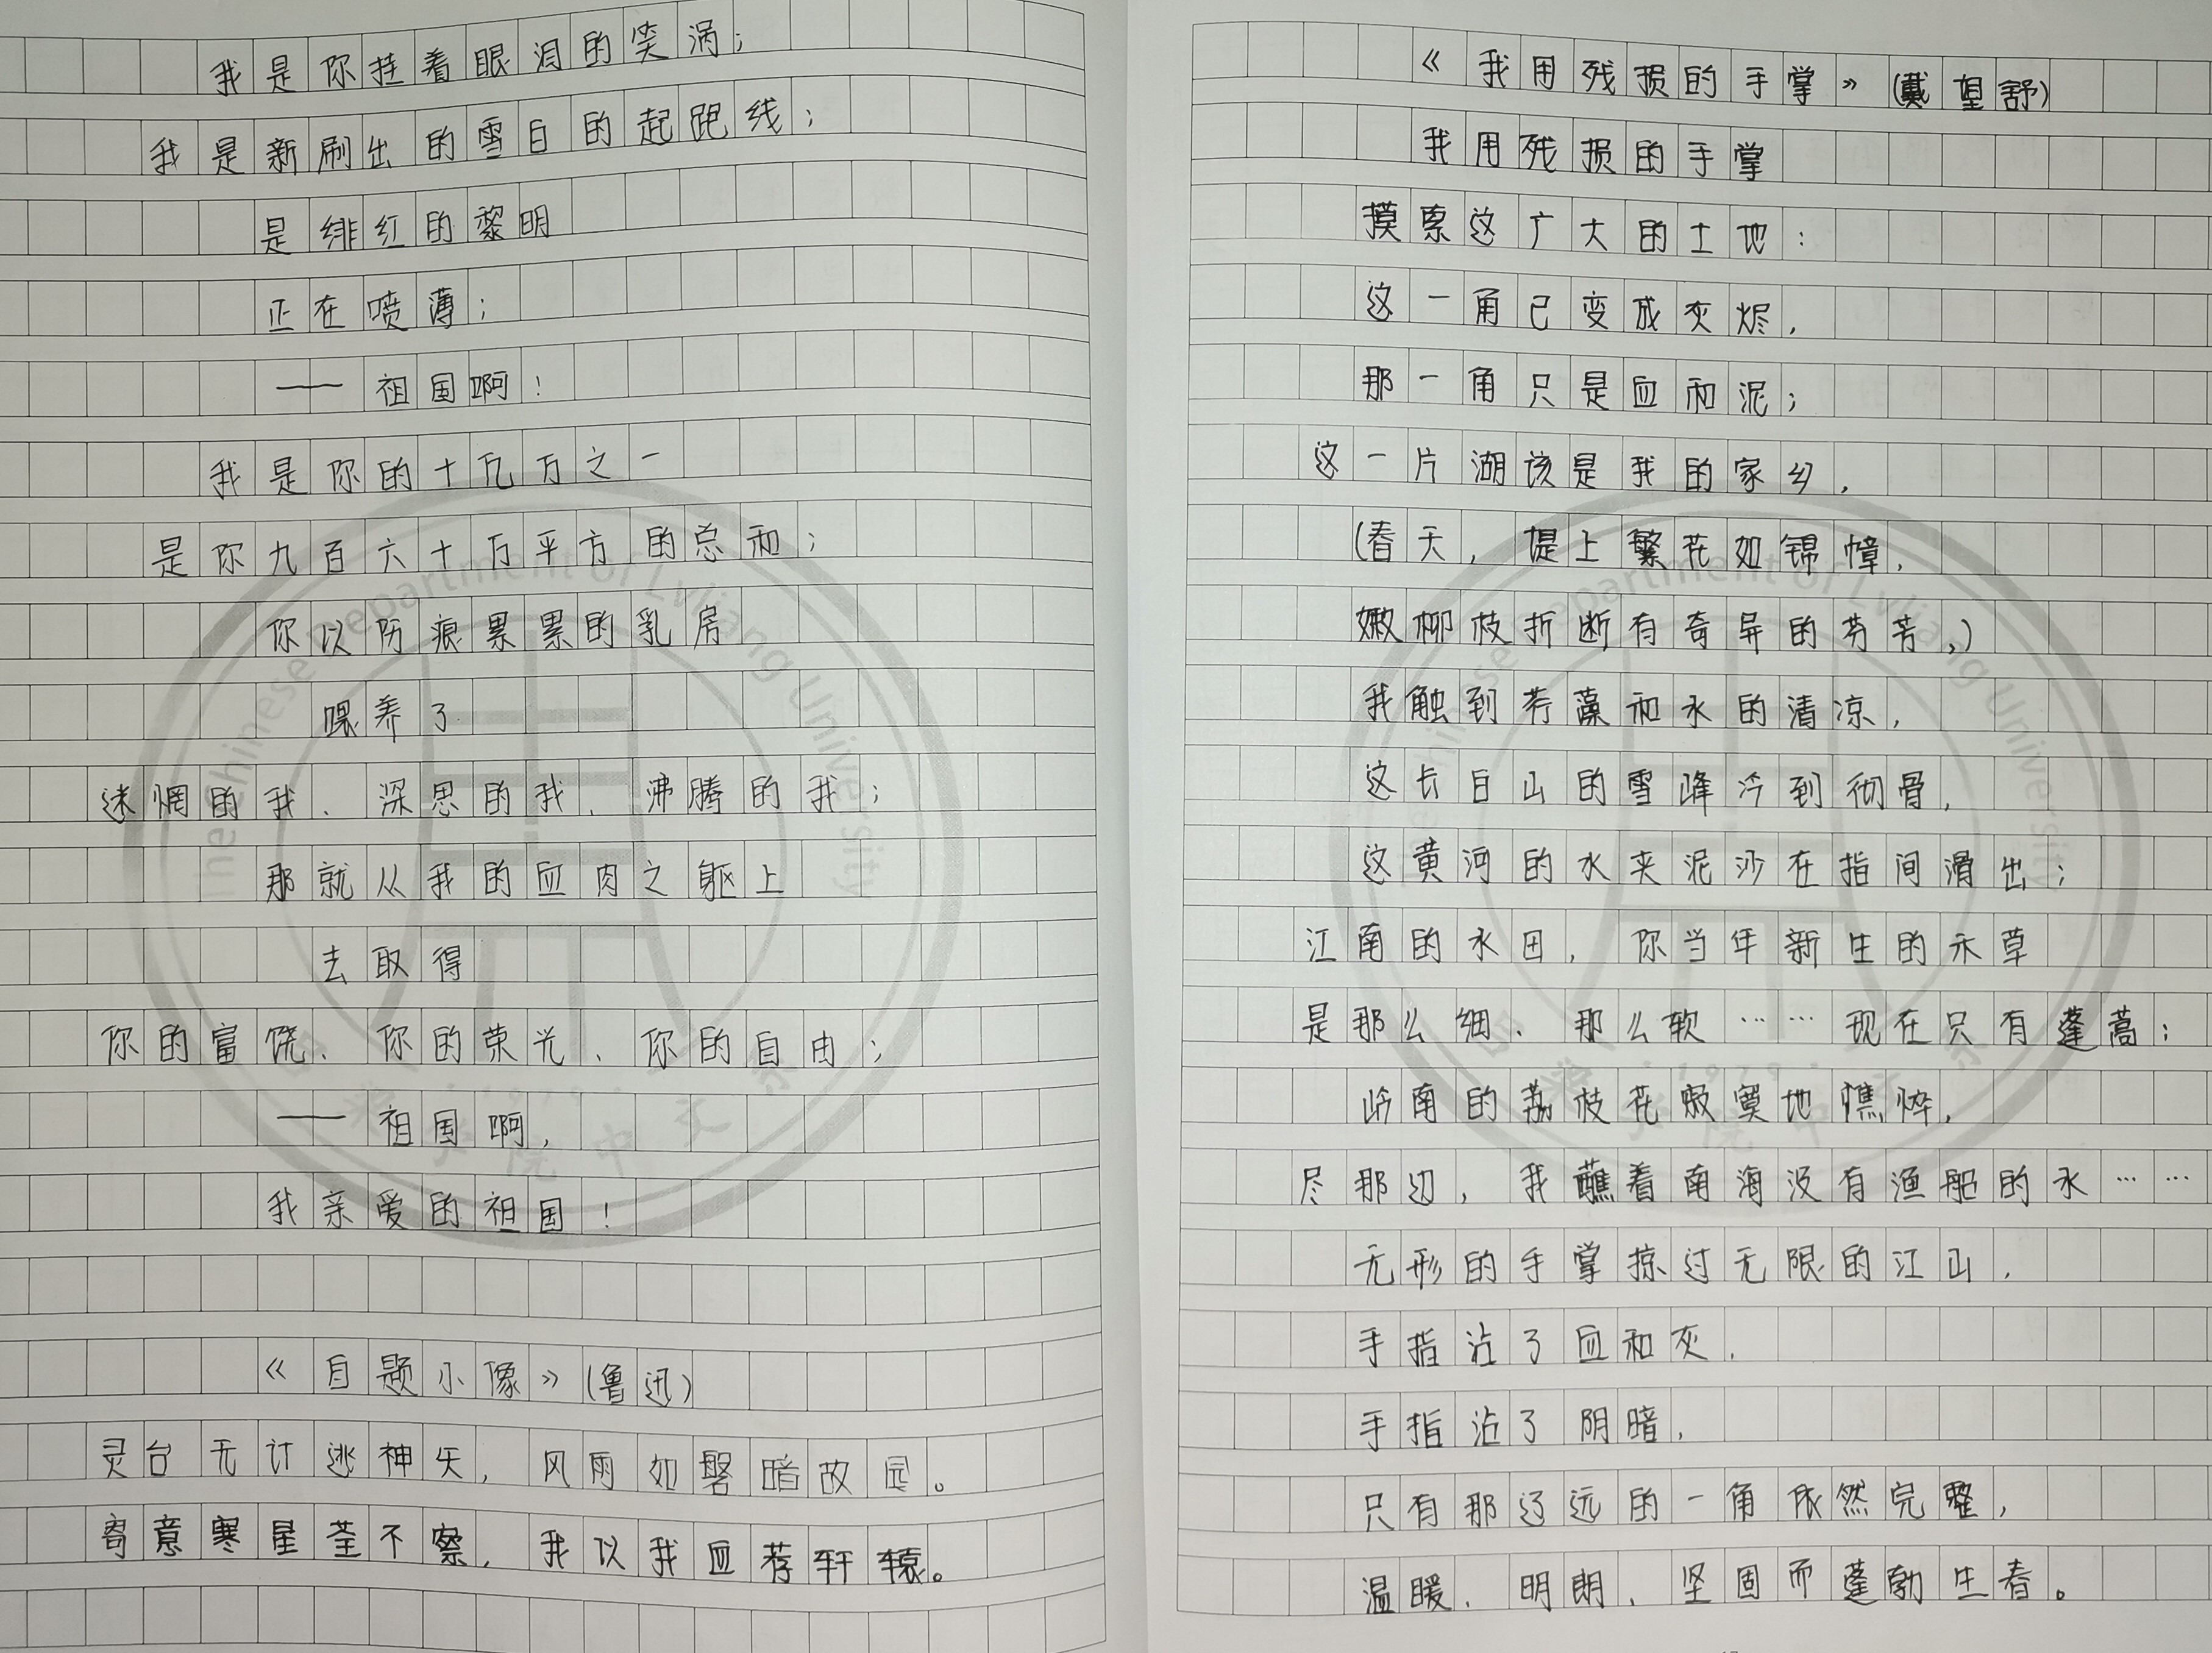 我是你挂着眼泪的笑涡；
我是新刷出的雪白的起跑线；
是绯红的黎明
正在喷薄；
——祖国啊！
我是你的十亿万之一
是你九百六十万平方的总和；
你以伤痕累累的乳房
喂养了
迷惘的我、深思的我、沸腾的我；
那就从我的血肉之躯上
去取得
你的富饶、你的荣光、你的自由；
——祖国啊，
我亲爱的祖国！
《自题小像》（鲁迅）
灵台无计逃神矢，风雨如磐暗故园。
寄意寒星荃不察，我以我血荐轩辕。
《我用残损的手掌》（戴望舒）
我用残损的手掌
摸索这广大的土地：
这一角已变成灰烬，
那一角只是血和泥；
这一片湖该是我的家乡，
（春天，堤上繁花如锦幛，
嫩柳枝折断有奇异的芬芳，）
我触到荇藻和水的清凉，
这长白山的雪峰冷到彻骨，
这黄河的水夹泥沙在指间滑出；
江南的水田，你当年新生的禾草
是那么细、那么软……现在只有蓬蒿；
岭南的荔枝花寂寞地憔悴，
尽那边，我蘸着南海没有渔船的水……
无形的手掌掠过无限的江山，
手指沾了血和灰，
手指沾了阴暗，
只有那辽远的一角依然完整，
温暖、明朗、坚固而蓬勃生春。
The Chinese Department of Lvliang University
The Chinese Department of Lvliang University